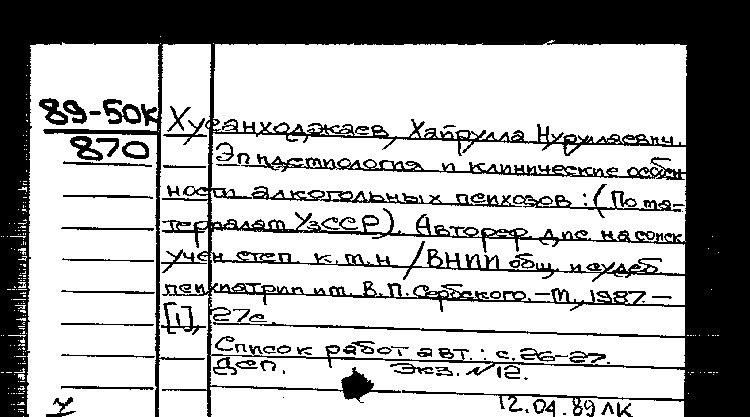 89-50к
870
Хусанходжаев, Хайрулла Нуруллаевич.
Эпидемиология и клинические особен
ности алкогольных психозов : (По ма-
териалам УзССР). Автореф дис на соиск
учен степ. к. м. н / ВНИИ общ. и судеб
психиатрии им. В. П. Сербского. – М., 1987 –
[1], 27с.
Список работ авт. : с. 26-27.
Деп. Экз. №12.
12.04.89 ЛК